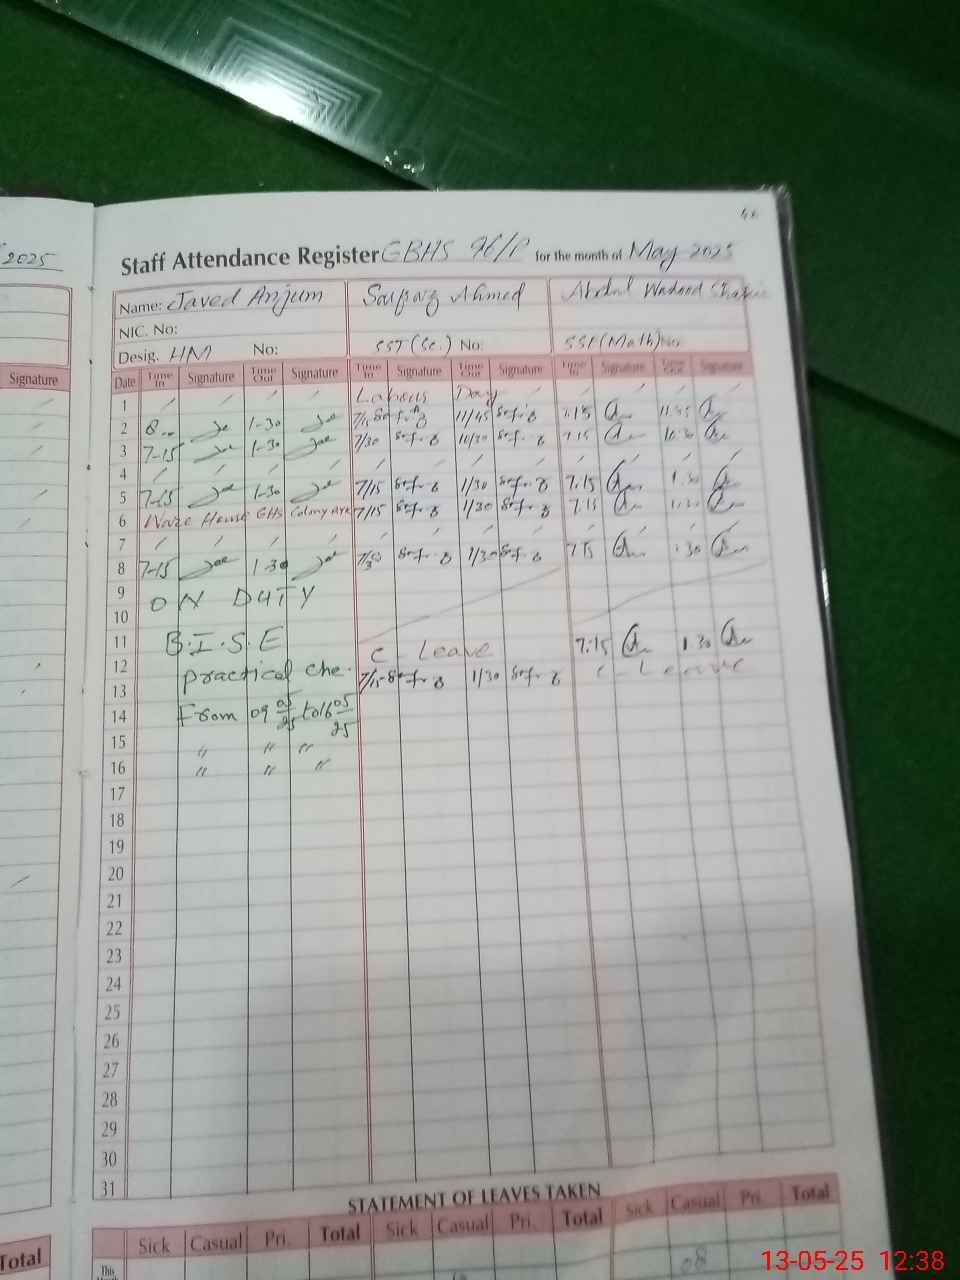 46
2025
Staff Attendance Register GBHS 96/P for the month of May 2025
Name: Javed Anjum Sarfraz Ahmed Abdul Wadood
NIC. No:
Desig. HM No: SST (Sc.) No: SST (Math) No:
Signature
Date Time In Signature Time Out Signature Time In Signature Time Out Signature Time In Signature Time Out Signature
1 Labour Day
2 8 1-30 7/15 11/45 7.15 11.45
3 7-15 1-30 7/30 10/30 7.15 10.30
4
5 7-15 1-30 7/15 1/30 7.15 1.30
6 Ware House GHS Colony 7/15 1/30 7.15 1.30
7
8 7-15 1-30 7/30 1/30 7.15 1.30
9 ON DUTY
10
11 B.I.S.E C-Leave 7.15 1.30
12 Practical che- C-Leave
13 7/15 1/30
14 From 09 05/25 to 16 05/25
15 " " "
16 " " "
17
18
19
20
21
22
23
24
25
26
27
28
29
30
31
STATEMENT OF LEAVES TAKEN
Total Sick Casual Pri. Total Sick Casual Pri. Total Sick Casual Pri. Total
This
08
13-05-25 12:38